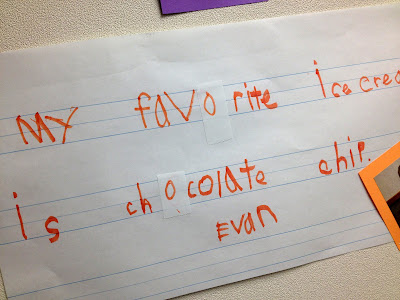 MY favorite icecrea
is chocolate chip.
Evan